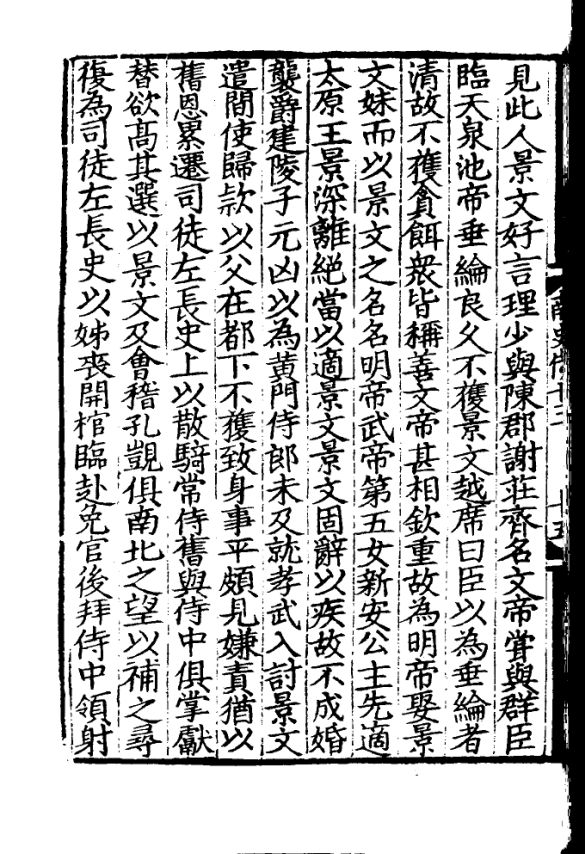 見此人景文好言理少與陳郡謝莊齊名文帝甞與群臣
臨天泉池帝垂綸良久不獲景文越席曰臣以為垂綸者
清故不獲貪餌衆皆稱善文帝甚相欽重故為明帝娶景
文妹而以景文之名名明帝武帝第五女新安公主先適
太原王景深離絕當以適景文景文固辭以疾故不成婚
襲爵建陵子元凶以為黃門侍郎未及就孝武入討景文
遣間使歸款以父在都下不獲致身事平頗見嫌責猶以
舊恩累遷司徒左長史上以散騎常侍舊與侍中俱掌獻
替欲高其選以景文及會稽孔覬俱南北之望以補之尋
復為司徒左長史以姊喪開棺臨赴免官後拜侍中領射